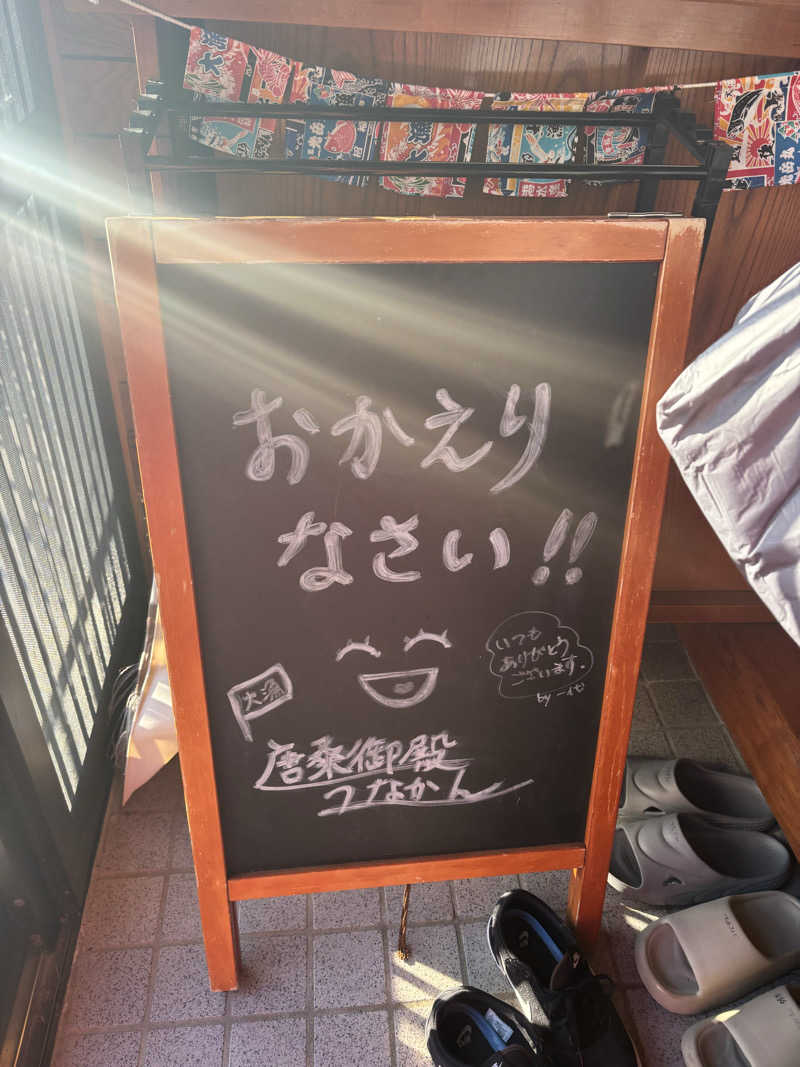 おかえり
なさい!!
いつも
ありがとう
ございます。
by 一代
大漁
唐桑御殿
つなかん